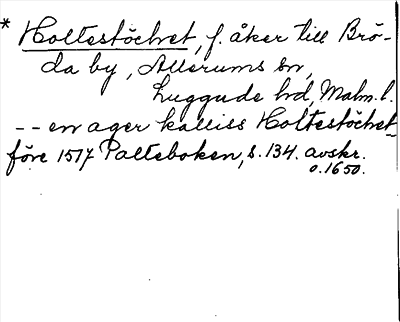 * Holtestöchet, f. åker till Brö-
da by, Allerums sn,
Luggude hd, Malm. l.
-- en ager kalliss Holtestöchet
före 1517 Palteboken, s. 134. avskr.
o. 1650.